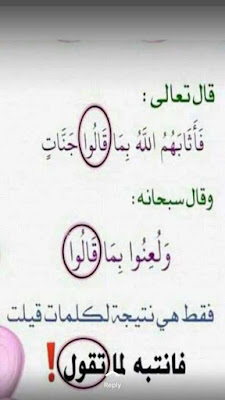 قال تعالى :
فَأَثَابَهُمُ اللَّهُ بِمَا قَالُوا جَنَّاتٍ
وقال سبحانه :
وَلُعِنُوا بِمَا قَالُوا
فقط هي نتيجة لكلمات قيلت
فانتبه لما تقول !
Reply